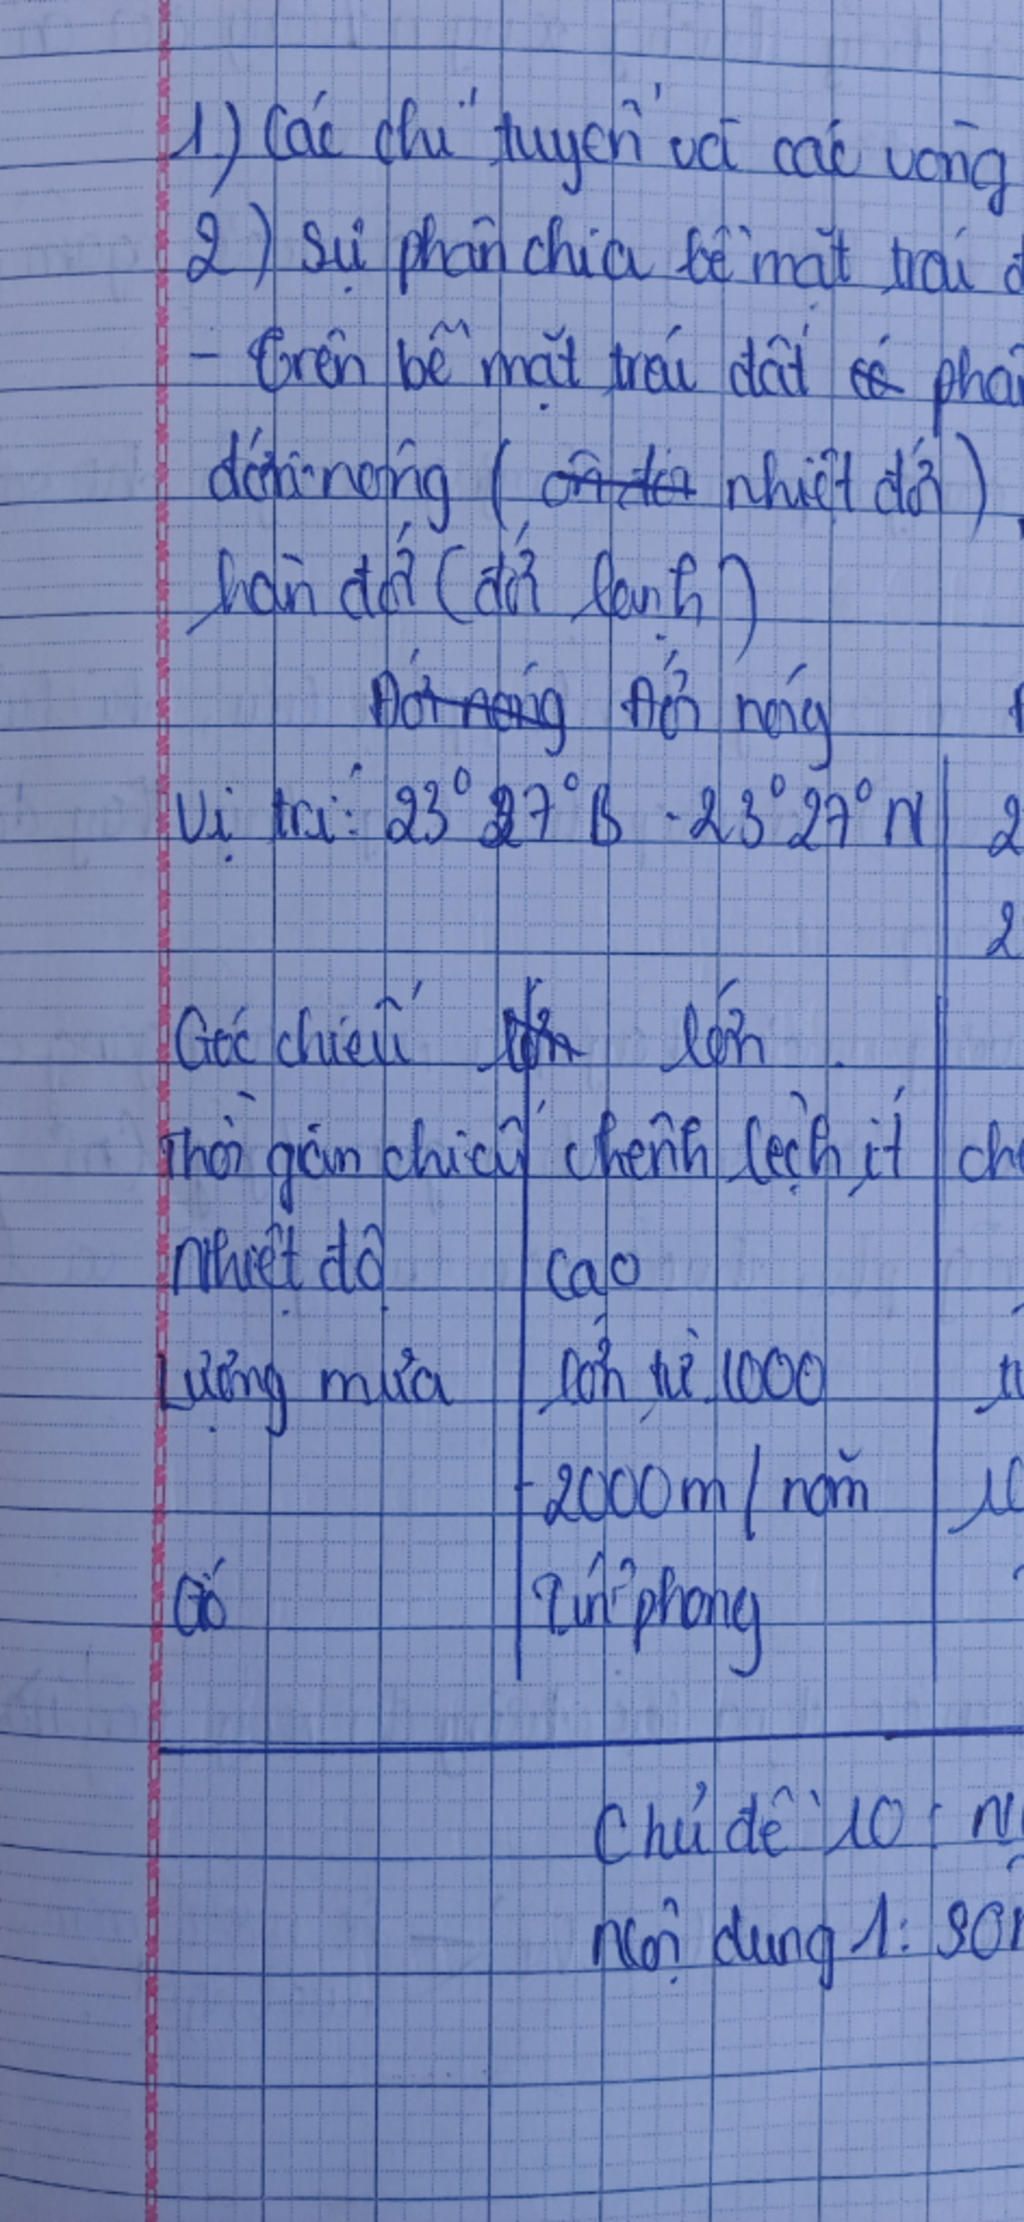 1) Các chí tuyến và các vòng
2) Sự phân chia bề mặt trái đ
- Trên bề mặt trái đất có phâ
đới nóng (ôn đới nhiệt đới)
hàn đới (đới lạnh)
Đới nóng Đới nóng
Vị trí: 23° 27° B - 23° 27° N 2
2
Góc chiếu lớn lớn
Thời gian chiếu chênh lệch ít ch
Nhiệt độ cao
Lượng mưa lớn từ 1000
- 2000m / năm 10
Gió Tín phong
Chủ đề 10: N
Nội dung 1: SÔ